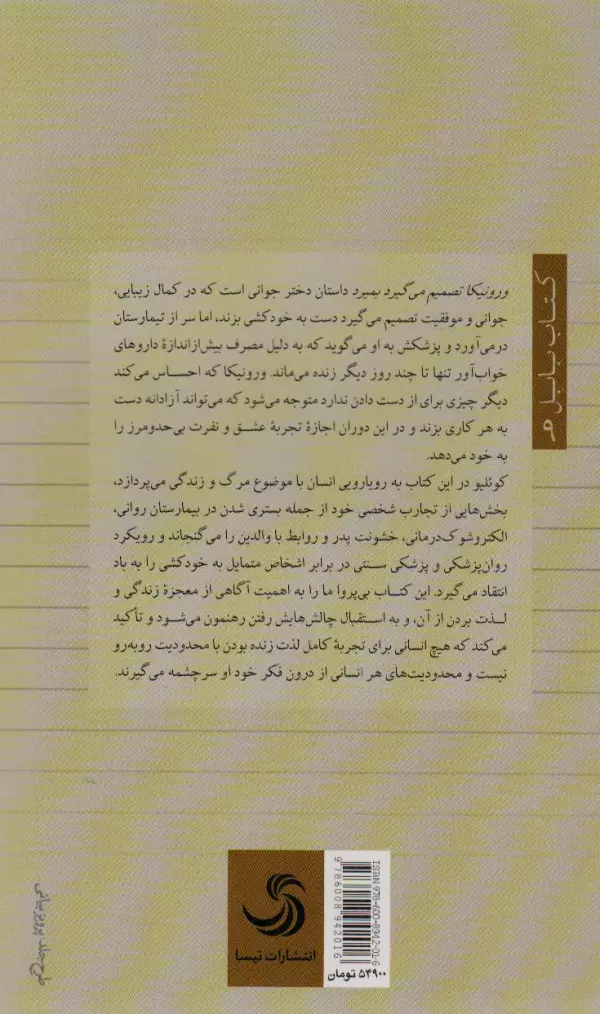 ورونیکا تصمیم می‌گیرد بمیرد داستان دختر جوانی است که در کمال زیبایی،
جوانی و موفقیت تصمیم می‌گیرد دست به خودکشی بزند، اما سر از تیمارستان
درمی‌آورد و پزشکش به او می‌گوید که به دلیل مصرف بیش‌ازاندازهٔ داروهای
خواب‌آور تنها تا چند روز دیگر زنده می‌ماند. ورونیکا که احساس می‌کند
دیگر چیزی برای از دست دادن ندارد متوجه می‌شود که می‌تواند آزادانه دست
به هر کاری بزند و در این دوران اجازهٔ تجربهٔ عشق و نفرت بی‌حدومرز را
به خود می‌دهد.
کوئلیو در این کتاب به رویارویی انسان با موضوع مرگ و زندگی می‌پردازد،
بخش‌هایی از تجارب شخصی خود از جمله بستری شدن در بیمارستان روانی،
الکتروشوک‌درمانی، خشونت پدر و روابط با والدین را می‌گنجاند و رویکرد
روان‌پزشکی و پزشکی سنتی در برابر اشخاص متمایل به خودکشی را به باد
انتقاد می‌گیرد. این کتاب بی‌پروا ما را به اهمیت آگاهی از معجزهٔ زندگی و
لذت بردن از آن، و به استقبال چالش‌هایش رفتن رهنمون می‌شود و تأکید
می‌کند که هیچ انسانی برای تجربهٔ کامل لذت زنده بودن با محدودیت روبه‌رو
نیست و محدودیت‌های هر انسانی از درون فکر خود او سرچشمه می‌گیرند.
کتاب بابل
انتشارات تیسا
ISBN 978-600-8942-01-6
9 786008 942016
۵۴۹۰۰ تومان
طرح جلد: پرویز بیانی